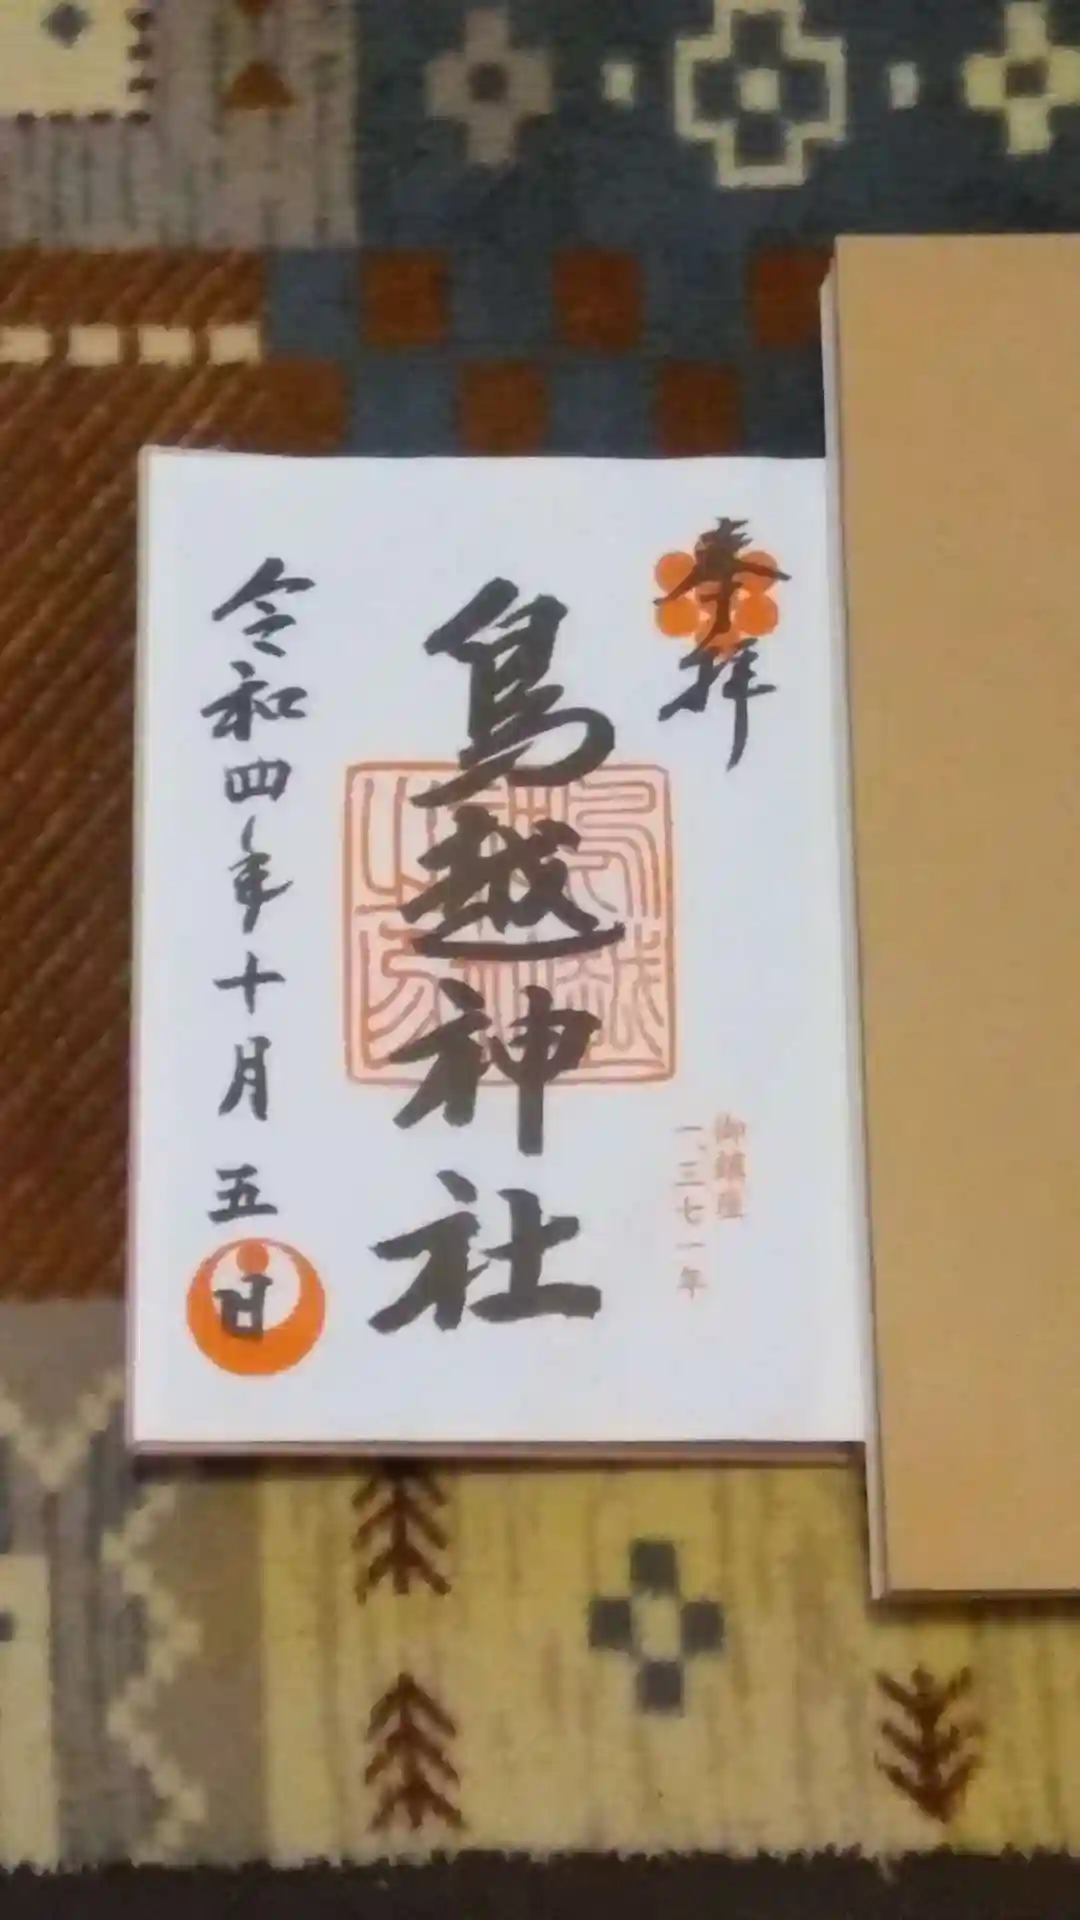 奉拝
御鎮座
一、三七一年
鳥越神社
令和四年十月五日